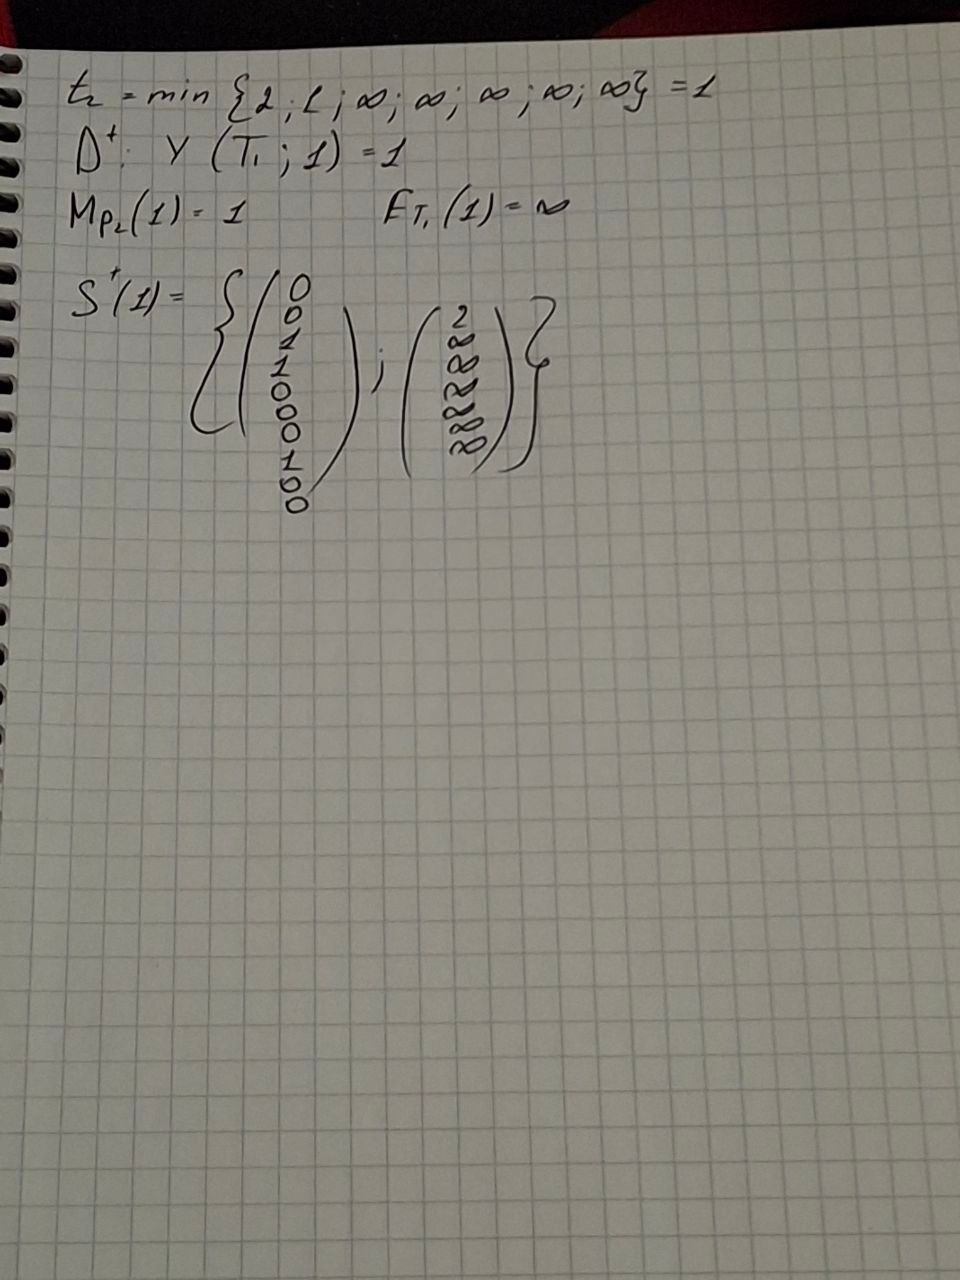 t₂ = min {2 ; 1 ; ∞ ; ∞ ; ∞ ; ∞ ; ∞} = 1
D⁺: Y (T₁ ; 1) = 1
Mp₂(1) = 1 ET₁(1) = ∞
S⁺(1) = { ( 0 0 1 1 0 0 0 1 0 0 ) ; ( 2 ∞ ∞ ∞ ∞ ∞ ∞ ) }